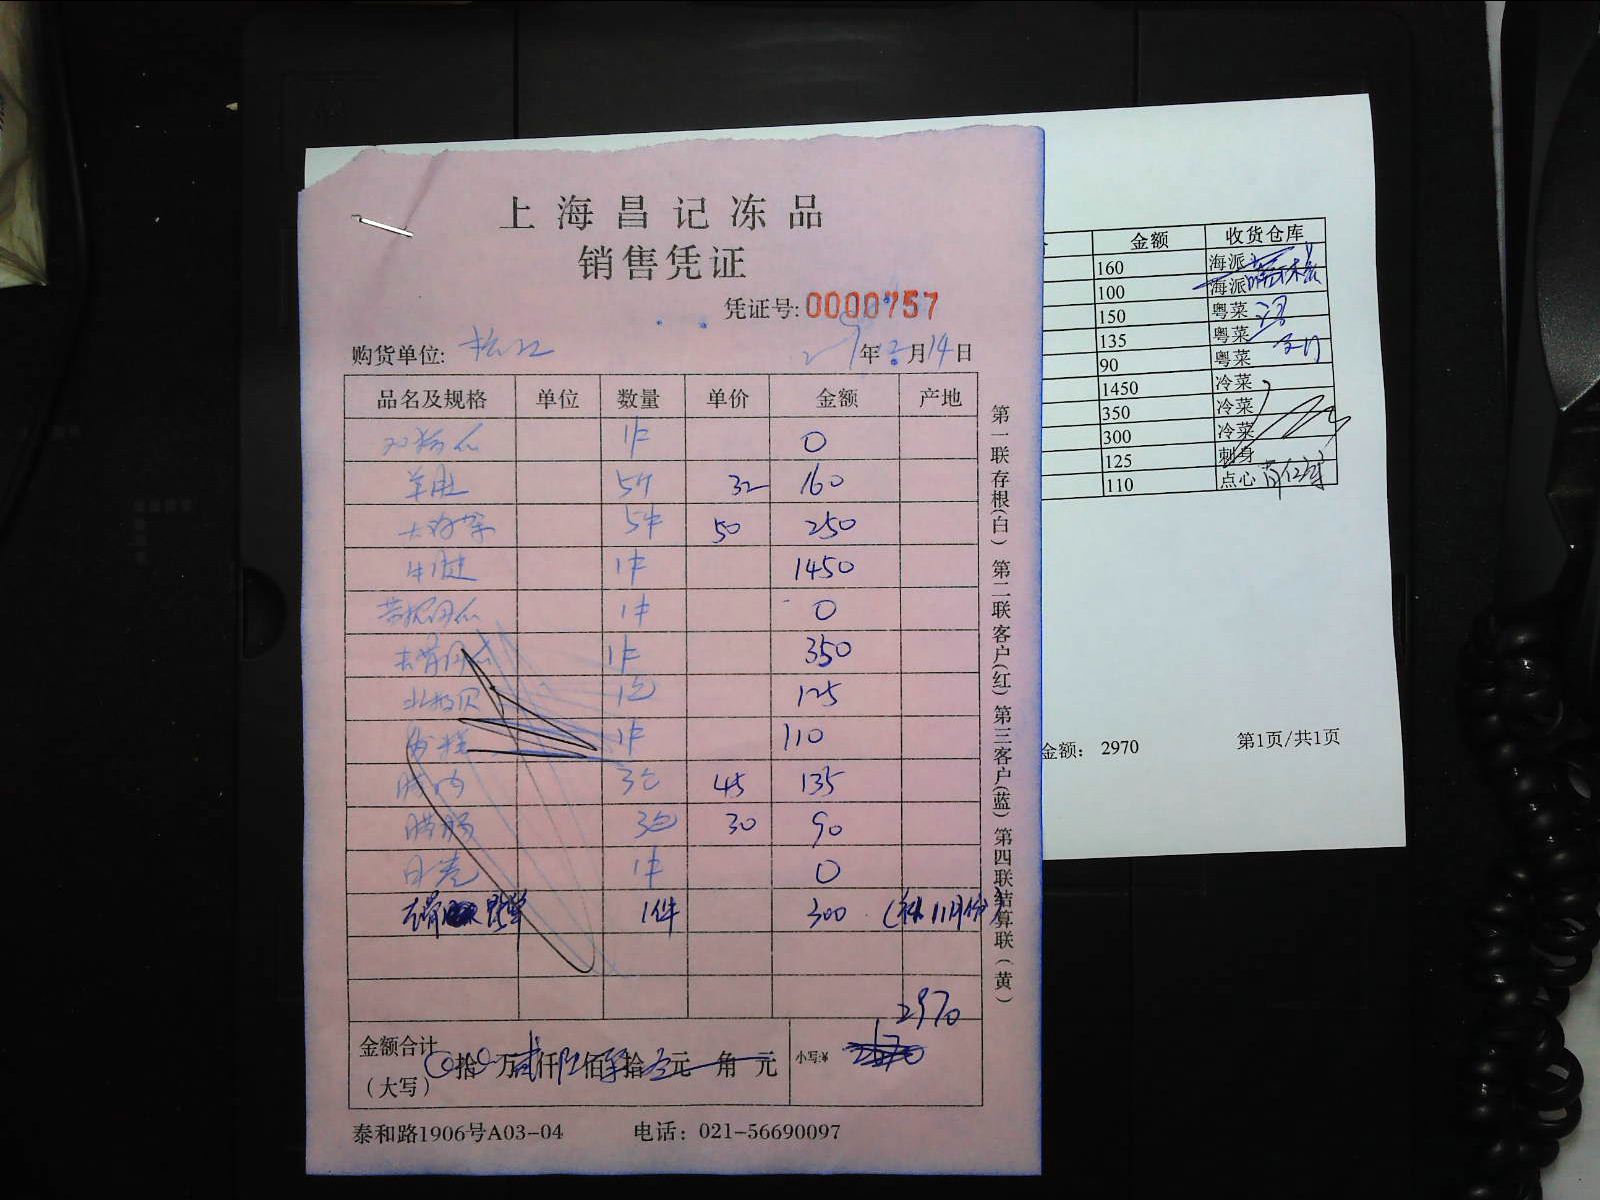 上海昌记冻品
销售凭证
凭证号: 0000757
购货单位: 松江 年 月14日
品名及规格 单位 数量 单价 金额 产地
1件 0
羊肚 5斤 32 160
5件 50 250
牛腱 1件 1450
1件 0
去骨 1件 350
北极贝 1包 125
1件 110
3包 45 135
腊肠 3包 30 90
1件 0
去骨 1件 300 (补11月份)
2970
金额合计 拾 万贰仟陆佰柒拾 元 角 元 小写:¥
(大写)
泰和路1906号A03-04 电话: 021-56690097
第一联存根(白) 第二联客户(红) 第三客户(蓝) 第四联结算联(黄)
金额 收货仓库
160 海派
100 海派
150 粤菜
135 粤菜
90 粤菜
1450 冷菜
350 冷菜
300 冷菜
125 刺身
110 点心
金额: 2970 第1页/共1页